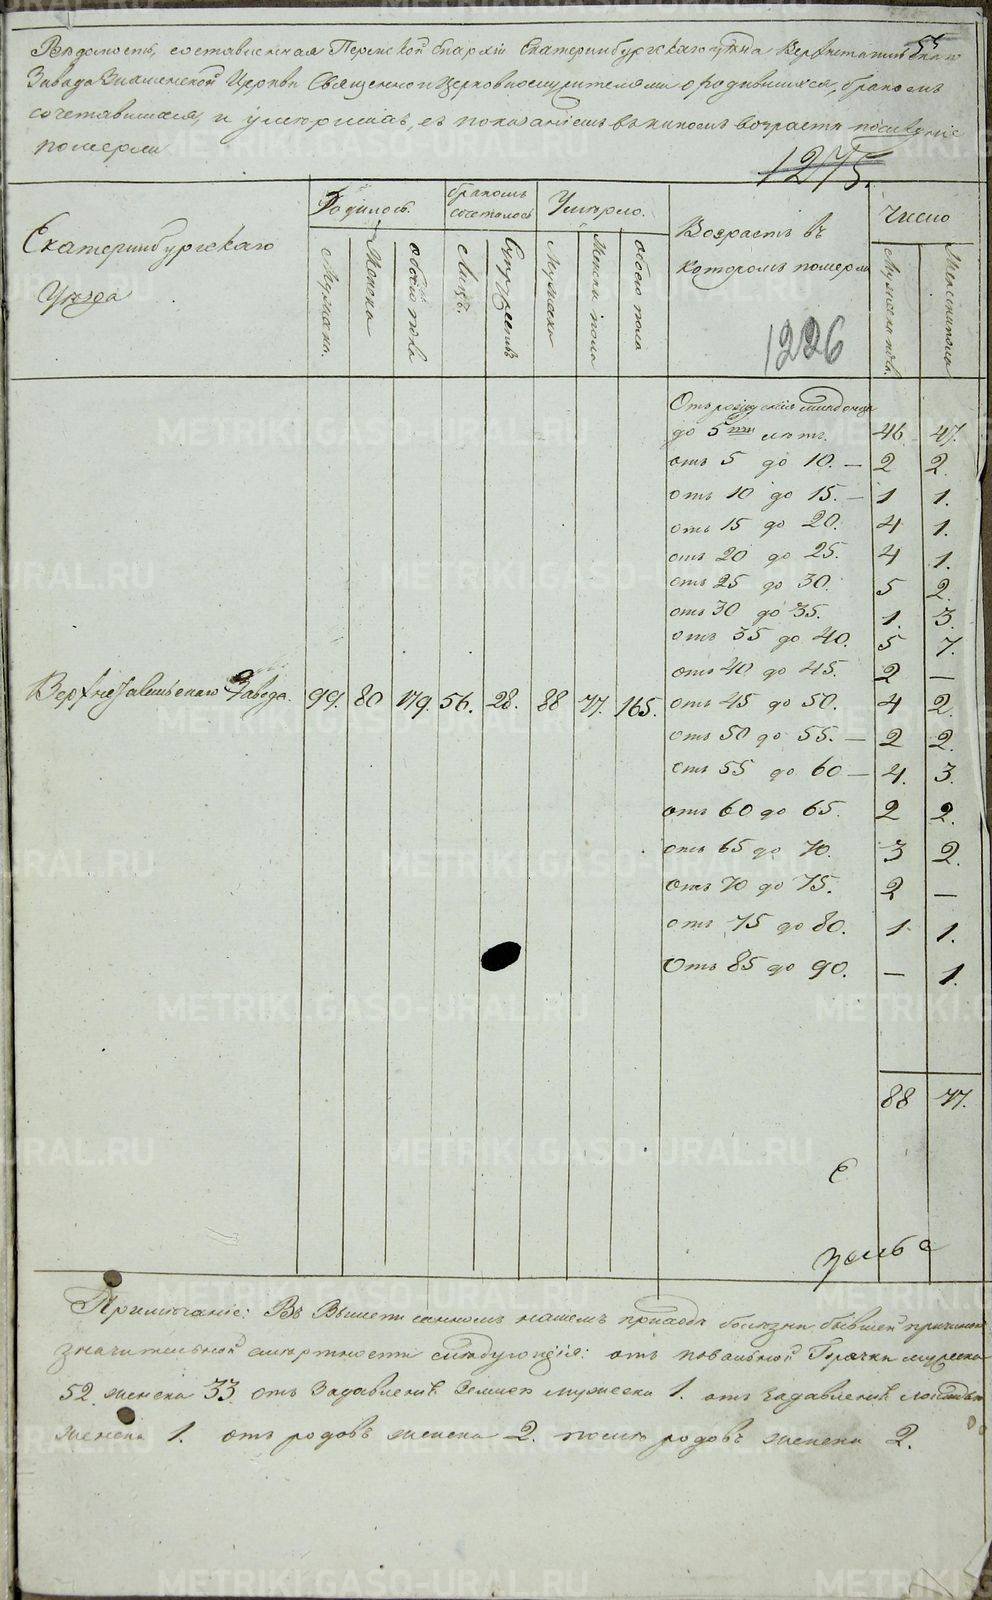 Ведомость, составленная Пермской Епархіи Екатеринбургскаго уѣзда Верхнетагильскаго
Завода Знаменской Церкви Священноицерковнослужителями о родившихся, бракомъ
сочетавшихся, и умершихъ, съ показаніемъ въ какомъ возрастѣ послѣдніе
померли
1275.
Екатеринбургскаго
Уѣзда
Родилось.
бракомъ
сочеталось
Умерло.
Возрастъ въ
которомъ померли
Число
Мужска.
Женска
обоего пола
Лицъ.
Супружествъ
Мужска
Женска пола
обоего пола
Мужска пола.
Женска пола
1226
Отъ рожденія младенца
до 5ти лѣтъ. 46. 47.
отъ 5 до 10. — 2 2.
отъ 10 до 15. — 1 1.
отъ 15 до 20. 4 1.
отъ 20 до 25. 4 1.
отъ 25 до 30. 5 2.
отъ 30 до 35. 1. 3.
отъ 35 до 40. 5 7.
отъ 40 до 45. 2 —
Верхнетагильскаго Завода. 99. 80 179. 56. 28. 88 77. 165. отъ 45 до 50. 4 2.
отъ 50 до 55. — 2 2.
отъ 55 до 60 — 4. 3.
отъ 60 до 65. 2 2.
отъ 65 до 70. 3 2.
отъ 70 до 75. 2 —
отъ 75 до 80. 1. 1.
Отъ 85 до 90. — 1.
88 77.
Примѣчаніе: Въ Вышеписанномъ нашемъ приходѣ болѣзни бывшей причиною
значительной смертности слѣдующія: отъ повальной Горячки мужеска
52. женска 33 отъ Задавленія Землею мужеска 1. отъ задавленія лошадью
женска 1. отъ родовъ женска 2. послѣ родовъ женска 2.
METRIKI.GASO-URAL.RU